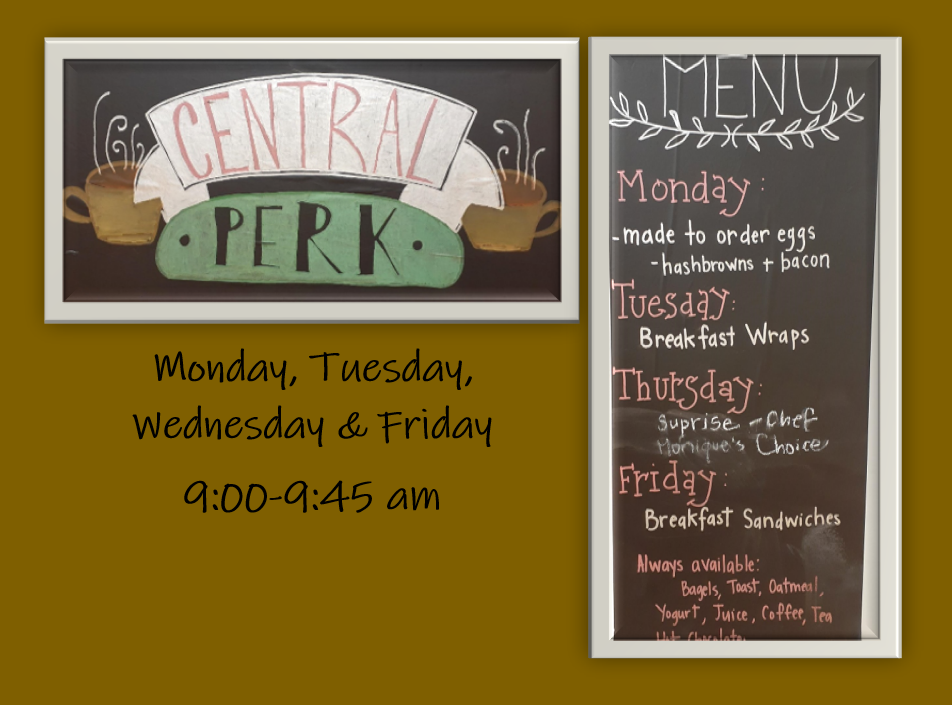 CENTRAL
PERK
Monday, Tuesday,
Wednesday & Friday
9:00-9:45 am
MENU
Monday:
-made to order eggs
-hashbrowns + bacon
Tuesday:
Breakfast Wraps
Thursday:
Suprise - Chef
Monique's Choice
Friday:
Breakfast Sandwiches
Always available:
Bagels, Toast, Oatmeal,
Yogurt, Juice, Coffee, Tea
Hot Chocolate